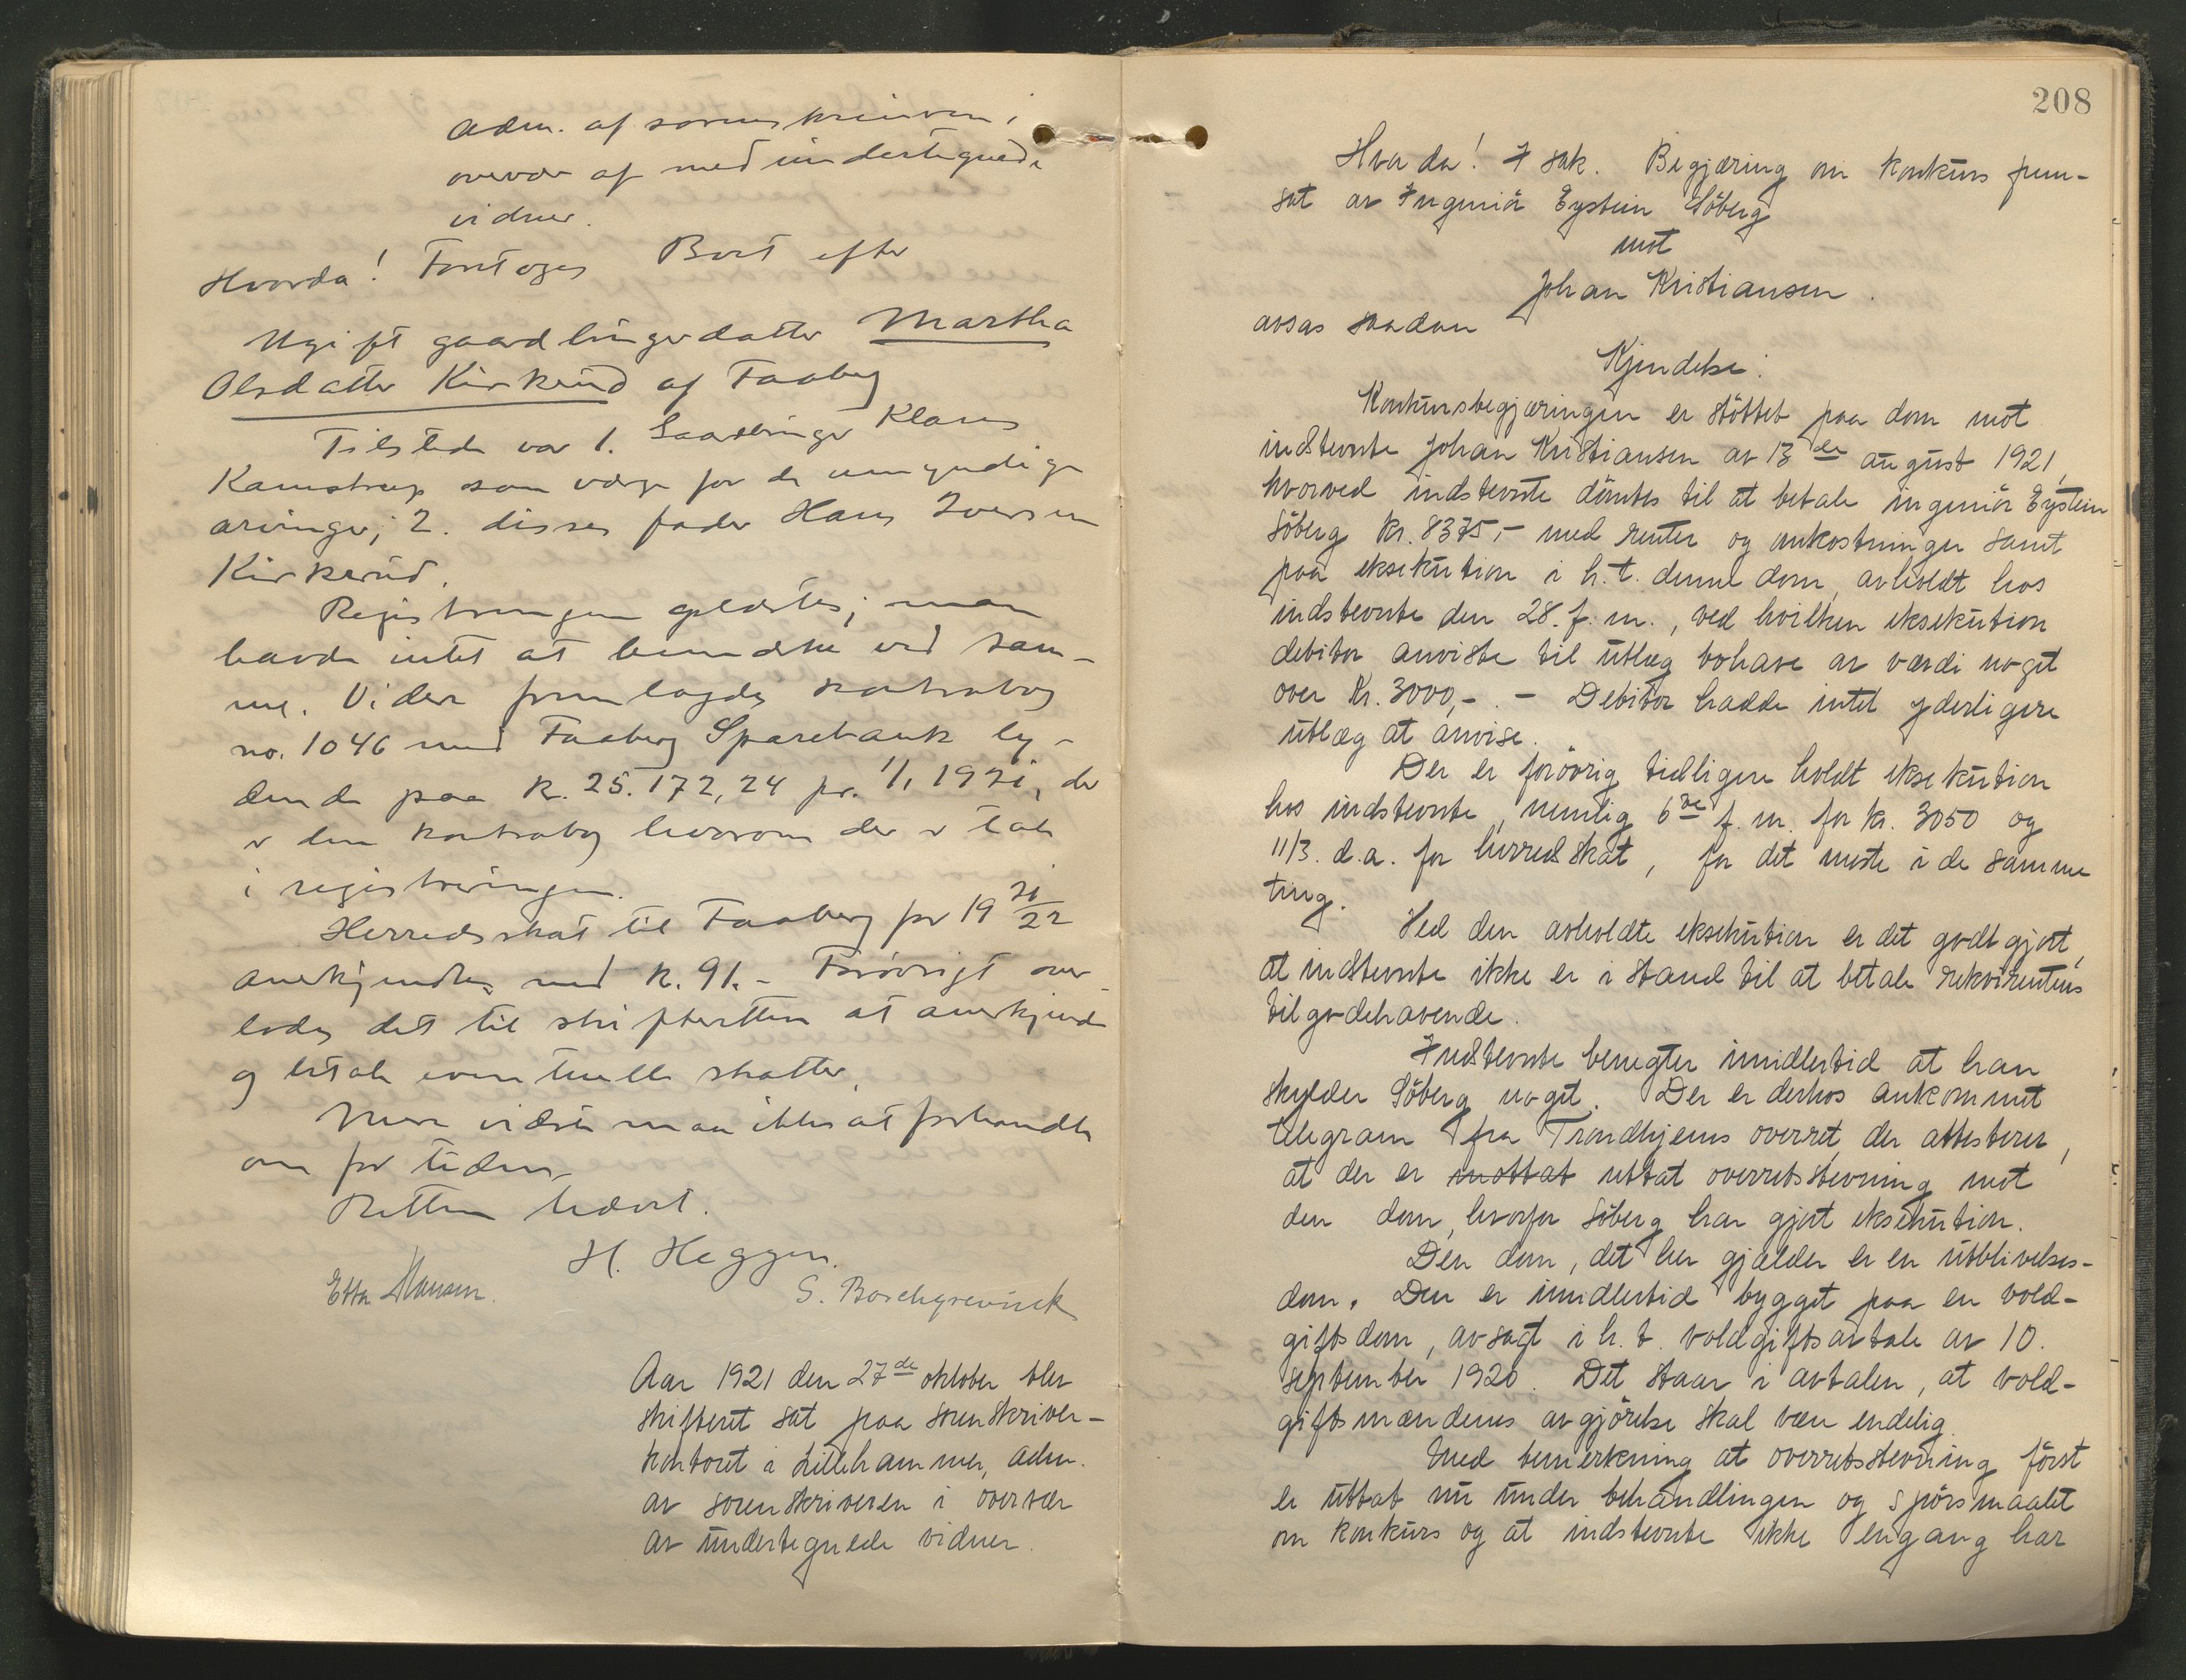 adm. af sorenskriveren i
overvær af medundertegnede
vidner.
Hvorda! Foretoges Boet efter
Ugift gaardbrugerdatter Martha
Olsdatter Kirkerud af Faaberg
Tilstede var 1. Gaardbruger Klaus
Kamstrup som værge for de umyndige
arvinger; 2. disses fader Hans Iversen
Kirkerud.
Registreringen oplæstes; man
havde intet at bemærke ved sam-
me. Videre fremlagdes kontrabog
no. 1046 med Faaberg Sparebank ly-
dende paa K. 25.172,24 pr. 1/1 1921, der
er den kontrabog hvorom der er tale
i registreringen.
Herredsskat til Faaberg for 19 21/22
anerkjendtes med K. 91.- Forøvrigt over-
lodes det til skifteretten at anerkjende
og betale eventuelle skatter.
Mere vidste man ikke at forhandle
om for tiden.
Retten hævet.
H. Heggen.
Etta Hansen. S. Borchgrevinck
Aar 1921 den 27de oktober blev
skifteret sat paa sorenskriver-
kontoret i Lillehammer, adm.
av sorenskriveren i overvær
av undertegnede vidner.
208
Hvorda! I sak. Begjæring om konkurs frem-
sat av Ingeniör Eystein Söberg
mot
Johan Kristiansen.
avsas saadan
Kjendelse:
Konkursbegjæringen er stöttet paa dom mot
indstevnte Johan Kristiansen av 13de august 1921,
hvorved indstevnte dömtes til at betale ingeniör Eystein
Söberg kr. 8375,- med renter og omkostninger samt
paa eksekution i h.t. denne dom, avholdt hos
indstevnte den 28. f.m., ved hvilken eksekution
debitor anviste til utlæg bohave av værdi noget
over kr. 3000,-. - Debitor hadde intet yderligere
utlæg at anvise.
Der er forövrig tidligere holdt eksekution
hos indstevnte, nemlig 6te f.m. for kr. 3050 og
11/3. d.a. for herredskat, for det meste i de samme
ting.
Ved den avholdte eksekution er det godtgjort,
at indstevnte ikke er i stand til at betale rekvirentens
tilgodehavende.
Indstevnte benegter imidlertid at han
skylder Söberg noget. Der er derhos ankommet
telegram fra Trondhjems overret, der attesterer,
at der er mottat uttat overretsstevning mot
den dom, hvorfor Söberg har gjort eksekution.
Den dom, det her gjælder er en utblivelses-
dom. Den er imidlertid bygget paa en vold-
giftsdom, avsagt i h.t. voldgiftsavtale av 10.
september 1920. Det staar i avtalen, at vold-
giftsmændenes avgjörelse skal være endelig.
Med bemerkning at overretsstevning först
er uttat nu under behandlingen og spörsmaalet
om konkurs og at indstevnte ikke engang har